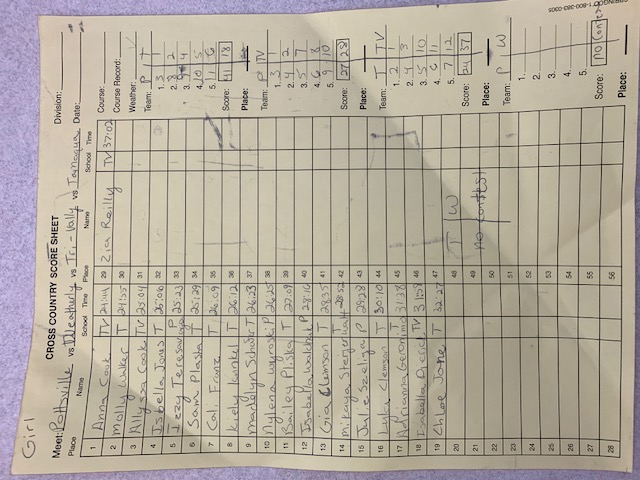 Girl
CROSS COUNTRY SCORE SHEET
Meet: Pottsville vs Weatherly vs Tri-Vally vs Tamaqua
Division:
Date:
Place Name School Time
1 Anna Cook TV 24:44
2 Molly T 24:55
3 Allyssa Cook TV 25:04
4 Isbella Jones T 25:06
5 Izzy P 25:23
6 Sam Plasta T 25:29
7 Cali Franz T 26:09
8 Kiely Kunkel T 26:12
9 Madelyn T 26:23
10 P 26:25
11 Bailey Pliska T 27:09
12 Isabella P 28:16
13 Gia Clemson T 28:35
14 Mikaya 28:52
15 Julie P 29:28
16 Clemson T 30:10
17 Adrianna Geronimo TV 31:38
18 Isabella TV 31:58
19 Chloe Jone T 32:27
20
21
22
23
24
25
26
27
28
Place Name School Time
29 Zia Reilly TV 37:02
30
31
32
33
34
35
36
37
38
39
40
41
42
43
44
45
46
47
48 T | W
49
50 no contest
51
52
53
54
55
56
Course:
Course Record:
Weather:
Team: P T
1. 3 1
2. 8 2
3. 9 4
4. 10 5
5. 11 6
Score: 41 18
Place:
Team: P TV
1. 3 1
2. 4 2
3. 5 7
4. 6 8
5. 9 10
Score: 27 28
Place:
Team: T TV
1. 2 1
2. 4 3
3. 5 10
4. 6 11
5. 7 12
Score: 24 37
Place:
Team: P W
1.
2.
3.
4.
5.
Score: no contest
Place:
1-800-383-0305